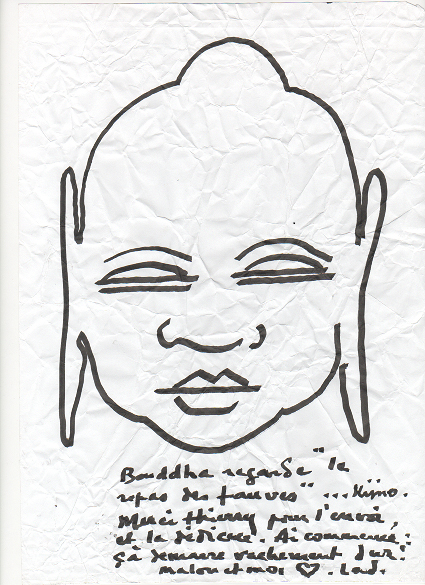 Bouddha regarde "le
repas des fauves" ... Kijno.
Merci thierry pour l'envoi,
et la dédicace. Ai commencé :
çà démarre vachement dur!
malou et moi ♡. Lad.